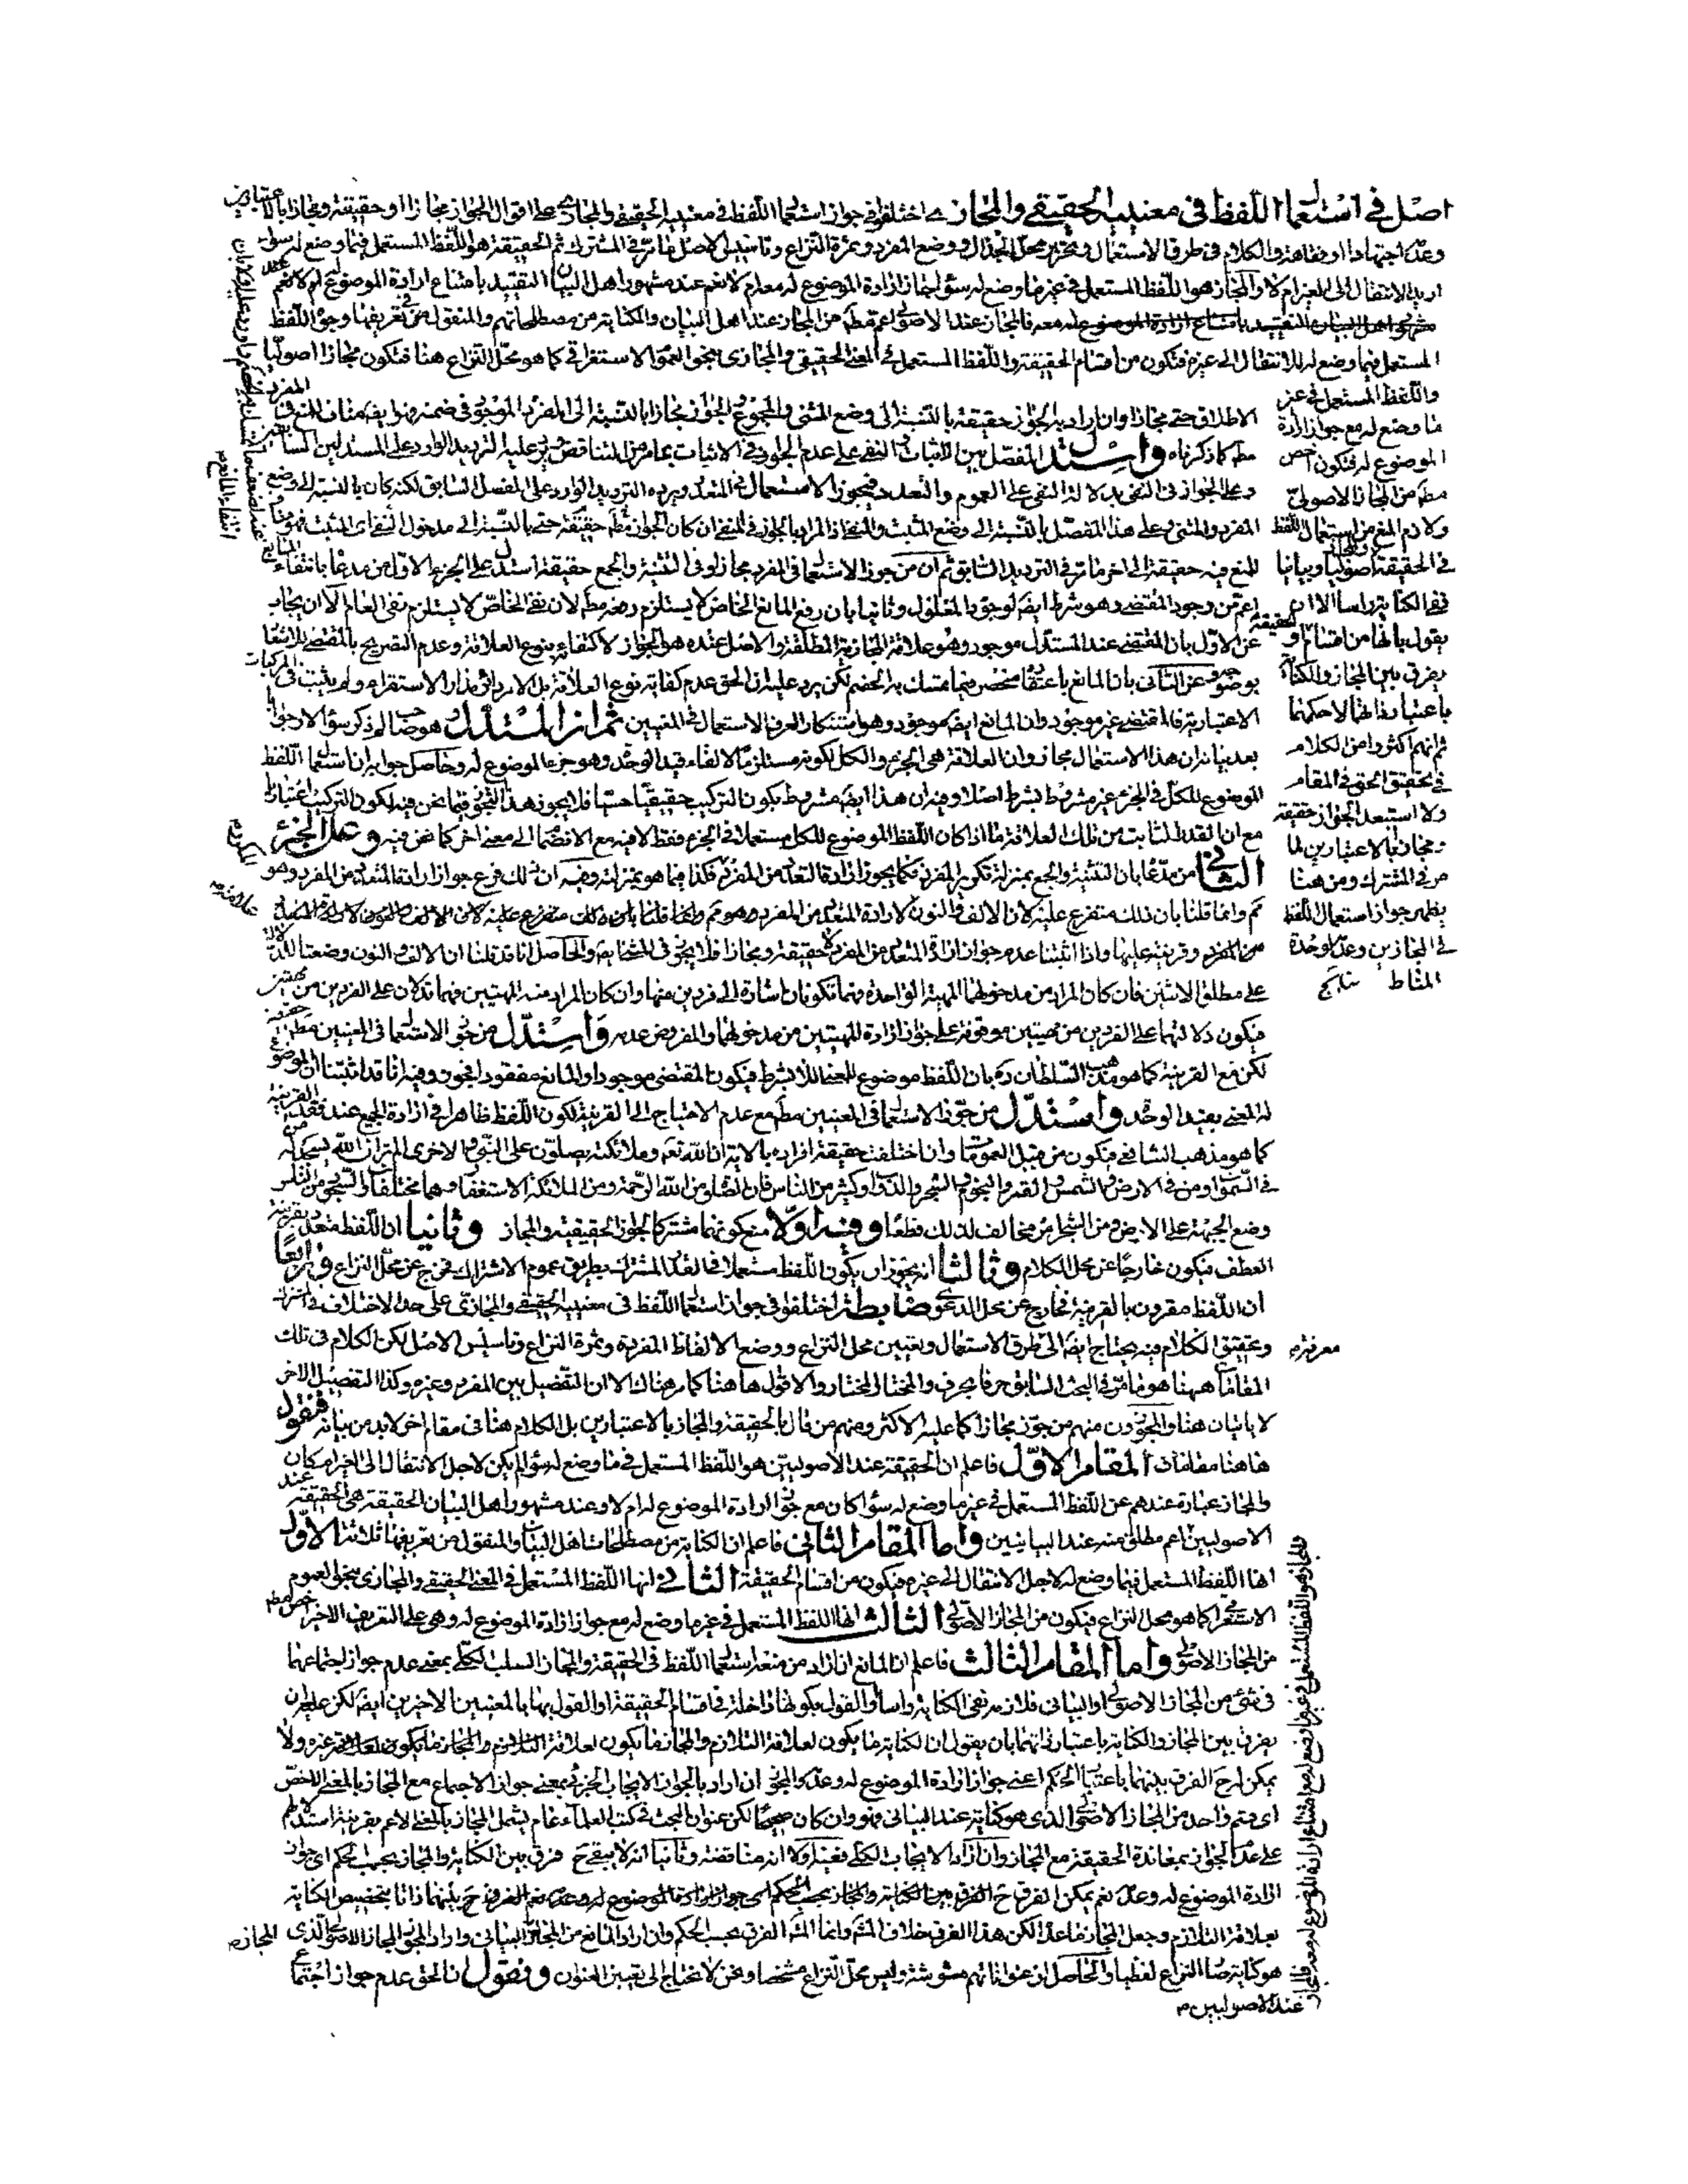 اصل في استعمال اللفظ في معنييه الحقيقي والمجازي اختلفوا في جواز استعمال اللفظ في معنييه الحقيقي والمجازي على اقوال الجواز مجازا او حقيقة ومجازا بالاعتبارين
وعدمه اجتهادا او تفاهة والكلام في طرق الاستعمال وتحرير محل الجدال ووضع المفرد وثمرة النزاع وتاسيس الاصل ما مر في المشترك ثم الحقيقة هو اللفظ المستعمل فيما وضع له سواء
اريد الانتقال الى الغير ام لا والمجاز هو اللفظ المستعمل في غير ما وضع له سواء جاز ارادة الموضوع له معه ام لا نعم عند مشهور اهل البيان التقييد بامتناع ارادة الموضوع له ام لا نعم
مشهور اهل البيان التقييد بامتناع ارادة الموضوع له معه فالمجاز عند الاصولي اعم مط من المجاز عند اهل البيان والكناية من مصطلحاتهم والمنقول في تعريفها وجوه اللفظ
المستعمل فيما وضع له للانتقال الى غيره فتكون من اقسام الحقيقة واللفظ المستعمل في المعنى الحقيقي والمجازي بنحو العموم الاستغراقي كما هو محل النزاع هنا فتكون مجازا اصوليا
واللفظ المستعمل في غير
ما وضع له مع جواز ارادة
الموضوع له فتكون اخص
مط من المجاز الاصولي
ولازم المنع من استعمال اللفظ
في الحقيقة والمجاز اصوليا وبيانيا
نفي الكناية راسا الا ان
يقول بانها من اقسام الحقيقة او
يفرق بين المجاز والكناية
باعتبار ذاتهما لا حكمهما
ثم انهم اكثروا من الكلام
في تحقيق الحق في المقام
ولا استبعد الجواز حقيقة
ومجازا بالاعتبارين لما
مر في المشترك ومن هنا
يظهر جواز استعمال اللفظ
في المجازين وعدمه لوحدة
المناط
الاطلاق حتى مجازا وان اراد به الجواز حقيقة بالنسبة الى وضع المثنى والمجموع الجواز مجازا بالنسبة الى المفرد الموجود في ضمنه
مط كما ذكرناه واستدل المفصل بين الاثبات والنفي على عدم الجواز في الاثبات بما مر من التناقض ويرد عليه الترديد الوارد على المستدلين
وعلى الجواز في النفي بدلالة النفي على العموم والتعدد فيجوز الاستعمال في المتعدد ويرده الترديد الوارد على المفصل السابق لكنه كان بالنسبة الى وضع
المفرد والمثنى وعلى هذا المفصل بالنسبة الى وضع المثبت والمنفي
للمنع فيه حقيقة الى اخر ما مر في الترديد السابق ثم ان من جوز الاستعمال في المفرد مجازا وفي التثنية والجمع حقيقة استدل على الجزء الاول من مدعاه بانتفاء المانع
اعم من وجود المقتضي وهو شرط ايضا لوجود المعلول وثانيا بان رفع المانع الخاص لا يستلزم رفعه مط لان نفي الخاص لا يستلزم نفي العام الا ان يجاب
عن الاول بان المقتضي عند المستدل موجود وهو علاقة المجازية المطلقة والاصل عنده هو الجواز لاكتفائه بنوع العلاقة وعدم التصريح بالمقتضي للاتفاق
بوضوحه وعن الثاني بان المانع باعتقاده منحصر فيما تمسك به الخصم لكن يرد عليه ان الحق عدم كفاية نوع العلاقة بل الامر دائر مدار الاستقراء ولم يثبت في المركبات
الاعتبارية فالمقتضي غير موجود وان المانع ايضا موجود وهو استنكار العرف الاستعمال في المعنيين ثم ان المستدل وهو صاحب المعالم ذكر سؤالا وجوابا
بعد بيانه ان هذا الاستعمال مجاز وان العلاقة هي الجزء والكل لكونه مستلزما لالغاء قيد الوحدة وهو جزء الموضوع له وحاصل جوابه ان استعمال اللفظ
الموضوع للكل في الجزء غير مشروط بشرط اصلا وفيه ان هذا ايضا مشروط بكون التركيب حقيقيا حسيا فلا يجوز هذا التجوز فيما نحن فيه لكون التركيب اعتباريا
مع ان القدر الثابت من تلك العلاقة ما اذا كان اللفظ الموضوع للكل مستعملا في الجزء فقط لا فيه مع الانضمام الى معنى اخر كما نحن فيه وعلى الجزء
الثاني من مدعاه بان التثنية والجمع بمنزلة تكرير المفرد فكما يجوز ارادة المتعدد من المفرد فكذا فيما هو بمنزلته وفيه ان ذلك فرع جواز ارادة المتعدد من المفرد وهو
مم وانما قلنا بان ذلك متفرع عليه لان الالف والنون لارادة المتعدد من المفرد
من المفرد وقرينة عليها واذا اثبتنا عدم جواز ارادة المتعدد من المفرد لا حقيقة ومجازا فلا يجوز في المثنى ايضا والحاصل انا قد قلنا ان الالف والنون وضعتا للدلالة
على مطلق الاثنين فان كان المراد من مدخولهما المهية الواحدة فهما تكونان اشارة الى فردين منها وان كان المراد منه المهيتين فهما تدلان على الفردين من مهيتين
فيكون دلالتهما على الفردين من مهيتين موقوفة على جواز ارادة المهيتين من مدخولهما والمفروض عدمه واستدل من جوز الاستعمال في المعنيين مط حقيقة
لكن مع القرينة كما هو مذهب السلطان ره بان اللفظ موضوع للمعنى لا بشرط فيكون المقتضي موجودا والمانع مفقودا فيجوز وفيه انا قد اثبتنا ان الموضوع
له المعنى بقيد الوحدة واستدل من جوز الاستعمال في المعنيين مط مع عدم الاحتياج الى القرينة لكون اللفظ ظاهرا في ارادة الجميع عند فقد القرينة
كما هو مذهب الشافعي فيكون من قبيل العمومات وان اختلفت حقيقة افراده بالاية ان الله تعالى وملائكته يصلون على النبي والاخرى الم تر ان الله يسجد له من
في السموات ومن في الارض والشمس والقمر والنجوم والشجر والدواب وكثير من الناس فان الصلوة من الله الرحمة ومن الملائكة الاستغفار وهما مختلفان والسجود من الناس
وضع الجبهة على الارض ومن الشجر امر مخالف لذلك قطعا وفيه اولا منع كونهما مشتركا لجواز الحقيقة والمجاز وثانيا ان اللفظ متعدد بقرينة
العطف فيكون خارجا عن محل الكلام وثالثا انه يجوز ان يكون اللفظ مستعملا في القدر المشترك بطريق عموم الاشتراك فيخرج عن محل النزاع ورابعا
ان اللفظ مقرون بالقرينة فخارج عن محل الدعوى ضابطة اختلفوا في جواز استعمال اللفظ في معنييه الحقيقي والمجازي على حد الاختلاف في المشترك
وتحقيق الكلام فيه يحتاج ايضا الى معرفة طرق الاستعمال وتعيين محل النزاع ووضع الالفاظ المفردة وثمرة النزاع وتاسيس الاصل لكن الكلام في تلك
المقامات ههنا هو ما مر في البحث السابق حرفا بحرف والمختار المختار والاقوال ها هنا كما مر هناك الا ان التفصيل بين المفرد وغيره وكذا التفصيل الاخر
لا ياتيان هنا والمجوزون منهم من جوز مجازا كما عليه الاكثر ومنهم من قال بالحقيقة والمجاز بالاعتبارين بل الكلام هنا في مقام اخر لابد من بيانه فنقول
هاهنا مقامات المقام الاول فاعلم ان الحقيقة عند الاصوليين هو اللفظ المستعمل في ما وضع له سواء لم يكن لاجل الانتقال الى اخر ام كان
والمجاز عبارة عندهم عن اللفظ المستعمل في غير ما وضع له سواء كان مع جواز ارادة الموضوع له ام لا وعند مشهور اهل البيان الحقيقة هي الحقيقة عند
الاصوليين اعم مطلق منه عند البيانيين واما المقام الثاني فاعلم ان الكناية من مصطلحات اهل البيان والمنقول من تعريفها ثلاثة الاول
انها اللفظ المستعمل فيما وضع له لاجل الانتقال الى غيره فيكون من اقسام الحقيقة الثاني انها اللفظ المستعمل في المعنى الحقيقي والمجازي بنحو العموم
الاستغراقي كما هو محل النزاع فيكون من المجاز الاصولي الثالث انها اللفظ المستعمل في غير ما وضع له مع جواز ارادة الموضوع له وهي على التعريف الاخير اخص مط
من المجاز الاصولي واما المقام الثالث فاعلم ان المانع ان اراد من منعه استعمال اللفظ في الحقيقة والمجاز السلب الكلي بمعنى عدم جواز اجتماعهما
في شيء من المجاز الاصولي او البياني فلازمه نفي الكناية راسا او القول بكونها داخلة في اقسام الحقيقة او القول بها بالمعنيين الاخيرين ايضا لكن عليه ان
يفرق بين المجاز والكناية باعتبار ذاتهما بان يقول ان الكناية ما يكون لعلاقة التلازم والمجاز ما يكون لعلاقة غيره ولا
يمكن له ح الفرق بينهما باعتبار الحكم اعني جواز ارادة الموضوع له وعدمه والمجوز ان اراد بالجواز الايجاب الجزئي بمعنى جواز الاجتماع مع المجاز بالمعنى الاخص
اي قسم واحد من المجاز الاصولي الذي هو كناية عند البياني فهو وان كان صحيحا لكن عنوان البحث في كتب العلماء عام يشمل المجاز بالمعنى الاعم بقرينة استدلالهم
على عدم الجواز بمعاندة الحقيقة مع المجاز وان اراد الايجاب الكلي ففيه اولا انه مناقضة وثانيا انه لا يبقى ح فرق بين الكناية والمجاز بحسب الحكم اي جواز
ارادة الموضوع له وعدمه نعم يمكن الفرق ح بينهما ذاتا بتخصيص الكناية
بعلاقة التلازم وجعل المجاز ما عداه لكن هذا الفرق خلاف المش وانما المش الفرق بحسب الحكم وان اراد المانع من المجاز المجاز البياني واراد المجوز المجاز الاصولي الذي
هو كناية صار النزاع لفظيا والحاصل ان عنواناتهم مشوشة وليس محل النزاع مشخصا ونحن لا نحتاج الى تعيين العنوان ونقول ان الحق عدم جواز اجتماع
والمجاز هو اللفظ المستعمل في غير ما وضع له مع امتناع ارادة الموضوع له معه فالمجاز
عند الاصوليين م